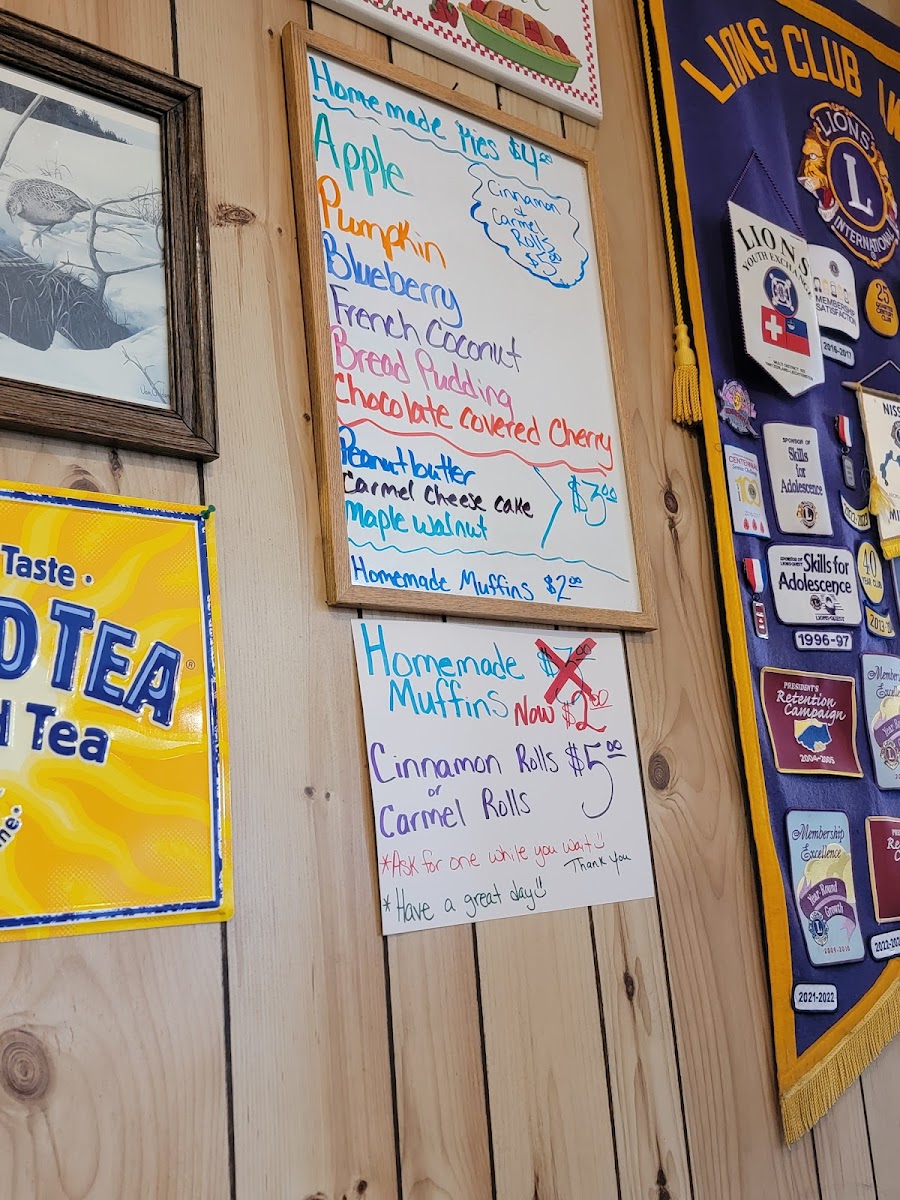 Homemade Pies $4.00
Apple
Pumpkin
Blueberry
French Coconut
Bread Pudding
Chocolate covered Cherry
Cinnamon
or
Carmel
Rolls
$5.00
Peanut butter
Carmel Cheese cake
Maple walnut
$3.00
Homemade Muffins $2.00
Homemade
Muffins Now $2.00
Cinnamon Rolls $5.00
or
Carmel Rolls
*Ask for one while you wait
Thank you
*Have a great day!
Taste •
TEA®
Tea
LIONS CLUB
LIONS
L
INTERNATIONAL
LIONS
YOUTH EXCHANGE
MEMBERSHIP
SATISFACTION
2016-2017
25
CENTENNIAL
SPONSOR OF
Skills
for
Adolescence
2022-2023
Skills for
Adolescence
1996-97
40
YEAR CLUB
PRESIDENT'S
Retention
Campaign
2004-2005
Membership
Excellence
Year-Round
Growth
2009-2010
2021-2022